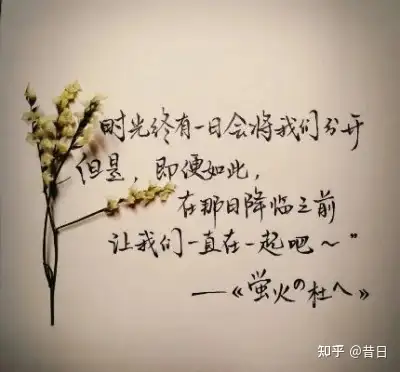 时光终有一日会将我们分开
但是，即便如此，
在那日降临之前
让我们一直在一起吧～"
——《萤火の杜へ》
知乎 @昔日